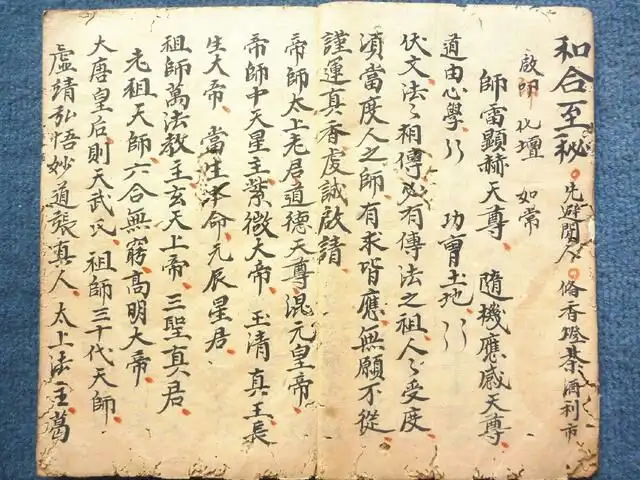 和合至秘 先避閒人 俻香燈綦酒利市
啟師 化壇 如常
師雷顯赫天尊 隨機應感天尊
道由心學〻 功曹土地〻
伏文法〻相傳必有傳法之祖人〻受度
湏當度人之師有求皆應無願不從
謹運真香虔誠啟請
帝師太上老君道德天尊混元皇帝
帝師中天星主紫微大帝 玉清真王長
生大帝 當生本命元辰星君
祖師萬法教主玄天上帝 三聖真君
老祖天師六合無窮高明大帝
大唐皇后則天武氏 祖師三十代天師
虛靖弘悟妙道張真人 太上法主葛